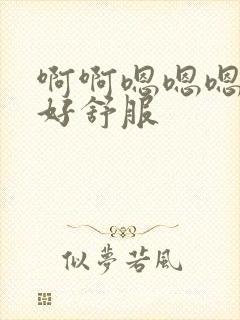 啊啊嗯嗯嗯
好舒服
似夢若風